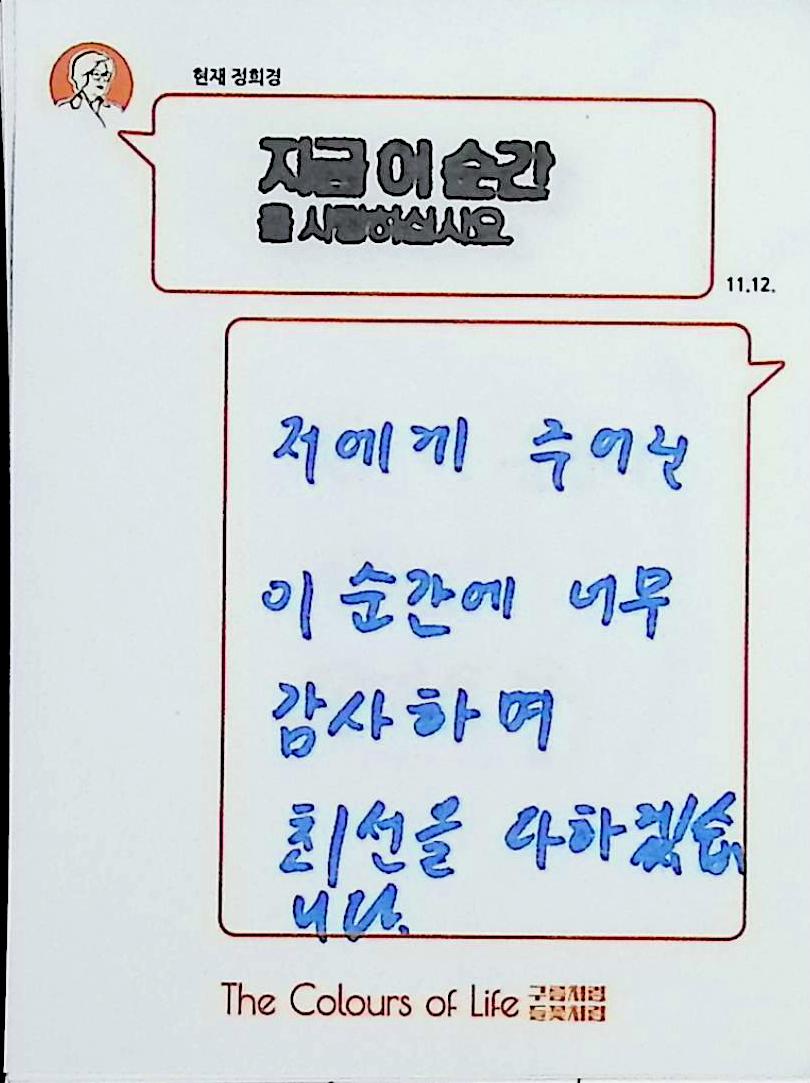 현재 정희경
지금 이 순간
을 사랑하십시요
11.12.
저에게 주어진
이 순간에 너무
감사하며
최선을 다하겠습
니다.
The Colours of Life 구름처럼
들꽃처럼